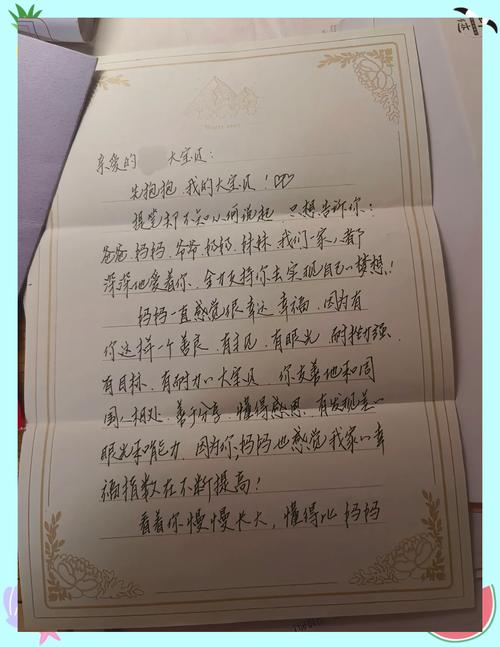 亲爱的 大宝贝：
先抱抱我的大宝贝！♡♡
提笔却不知从何说起，只想告诉你：
爸爸、妈妈、爷爷、奶奶、妹妹，我们一家人都
深深地爱着你，全力支持你去实现自己的梦想！
妈妈一直感觉很幸运、幸福，因为有
你这样一个善良、有主见、有眼光、耐挫力强、
有目标、有耐力的大宝贝，你友善地和周
围人相处，善于分享，懂得感恩，有发现美的
眼光和能力，因为你，妈妈也感觉我家的幸
福指数在不断提高！
看着你慢慢长大，懂得比妈妈